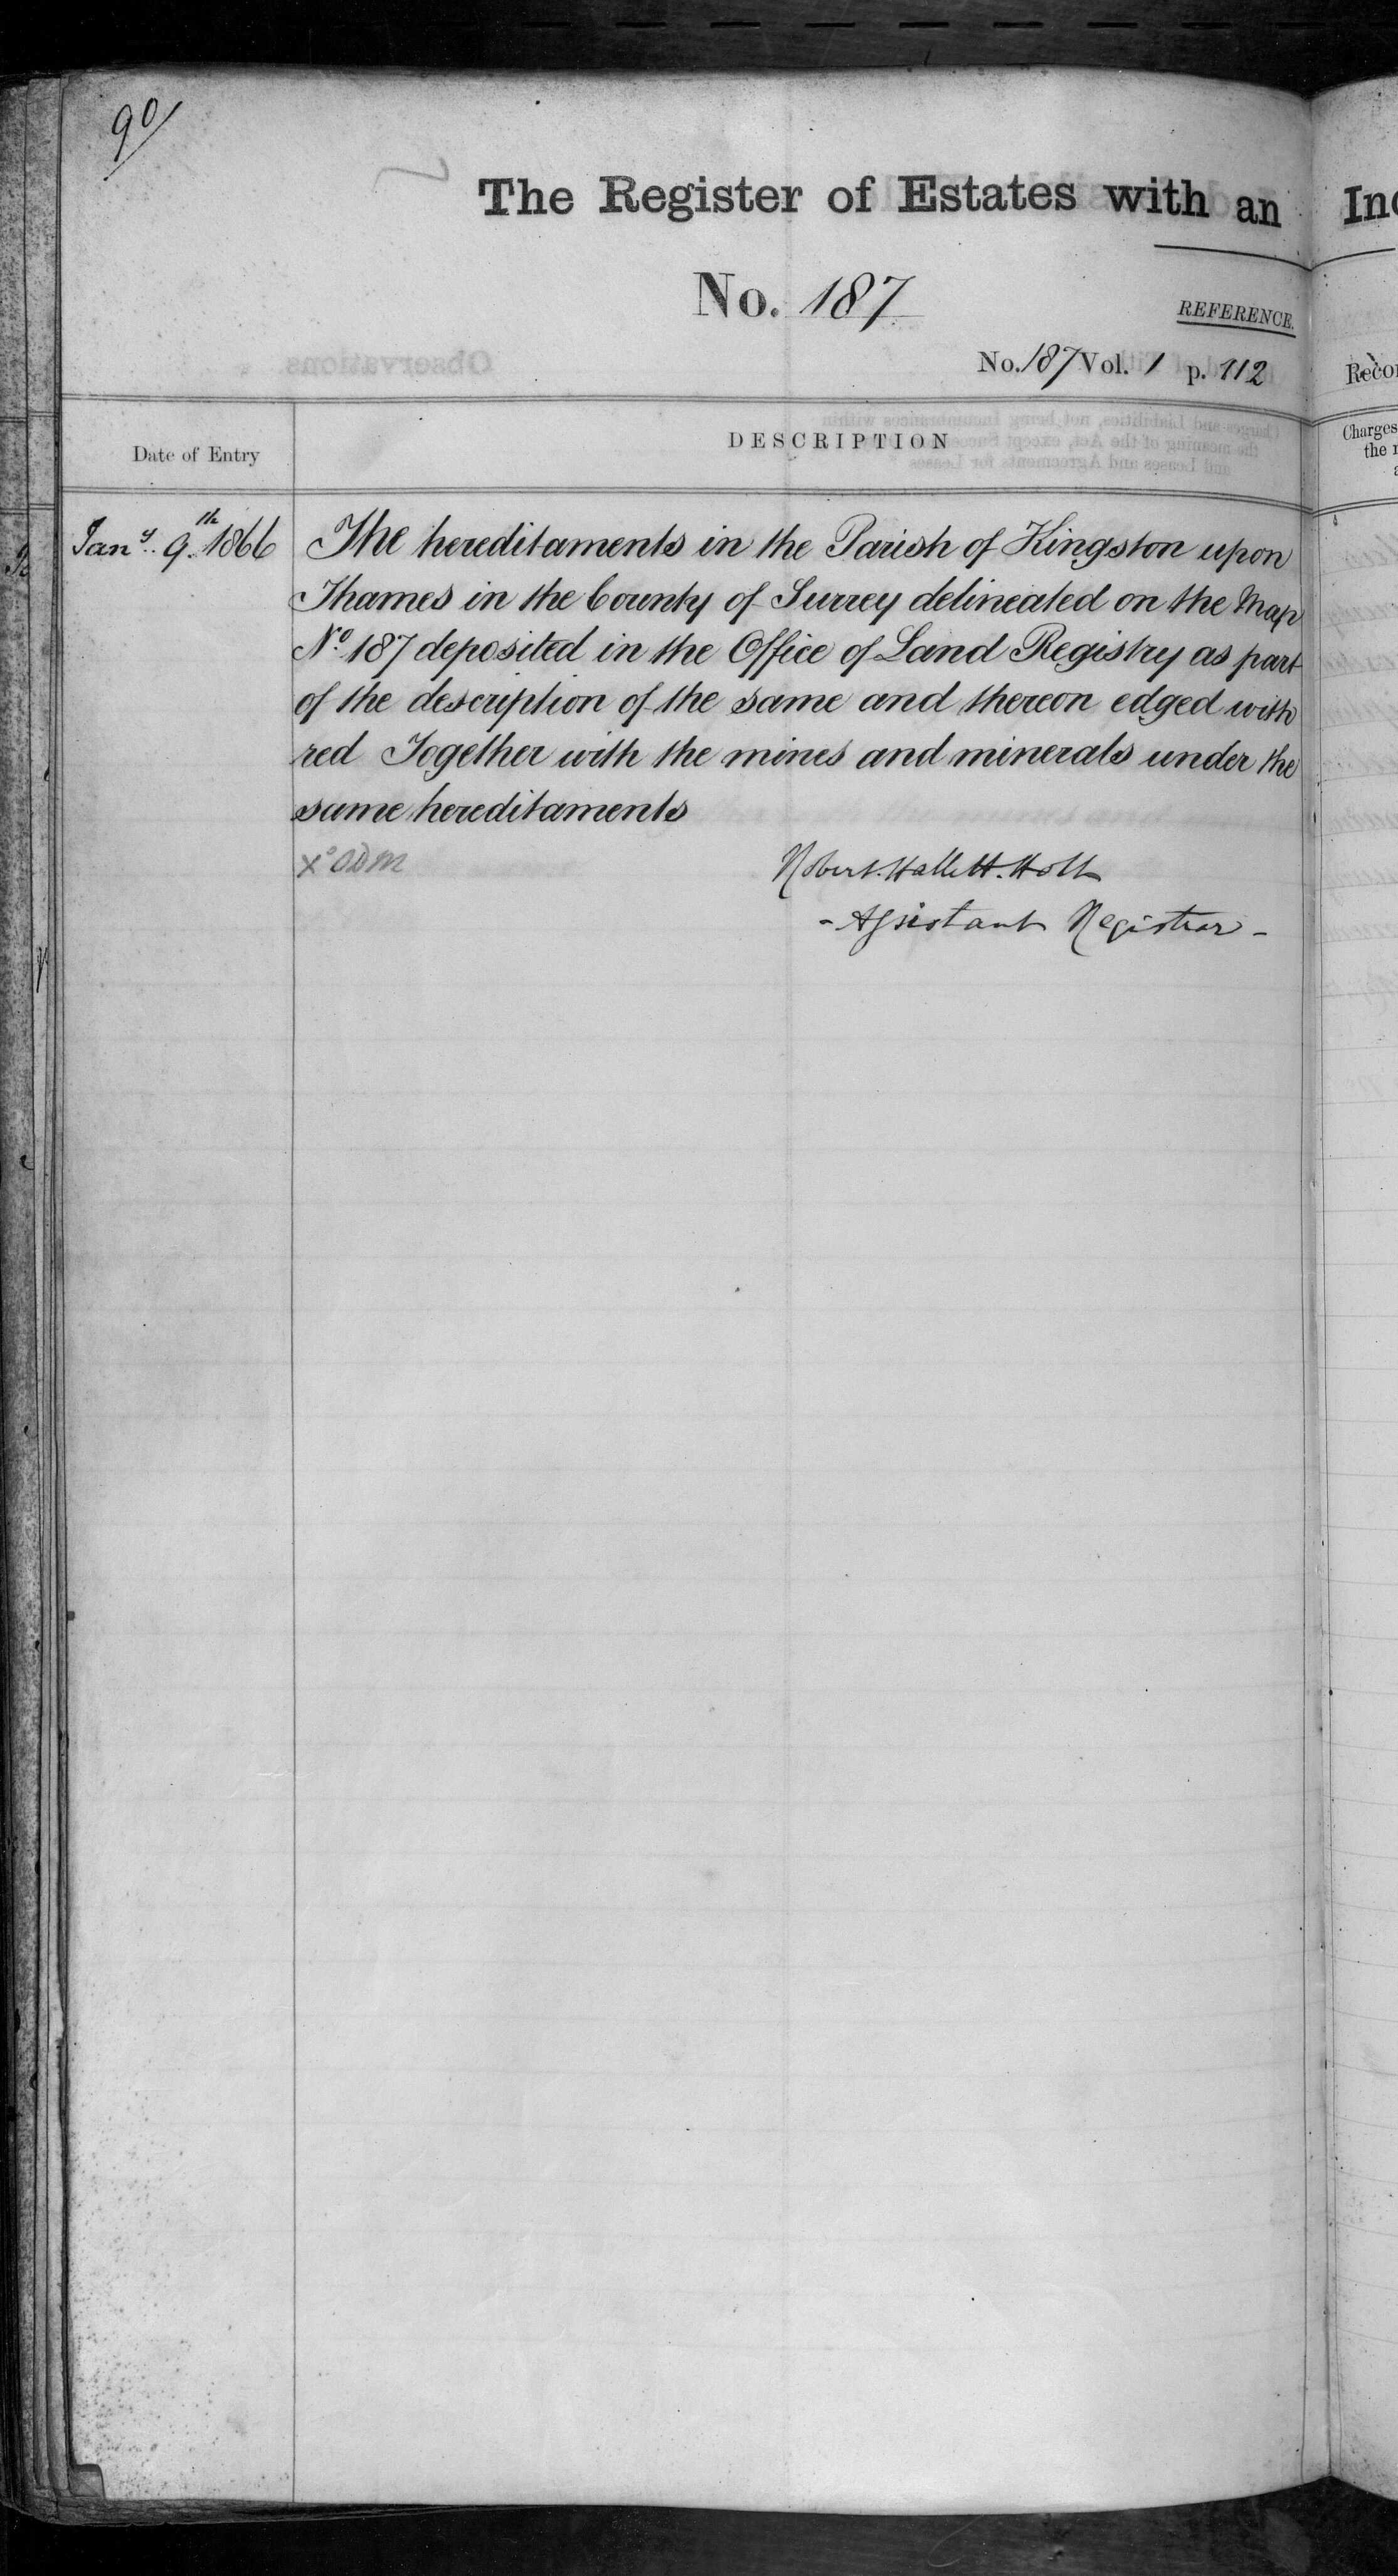 90
The Register of Estates with an
No. 187
REFERENCE.
No. 187 Vol. 1 p. 112
Date of Entry
DESCRIPTION
Jany. 9th 1866
The hereditaments in the Parish of Kingston upon
Thames in the County of Surrey delineated on the Map
No. 187 deposited in the Office of Land Registry as part
of the description of the same and thereon edged with
red Together with the mines and minerals under the
same hereditaments
Robert Hallett Holt
- Assistant Registrar -
Charges